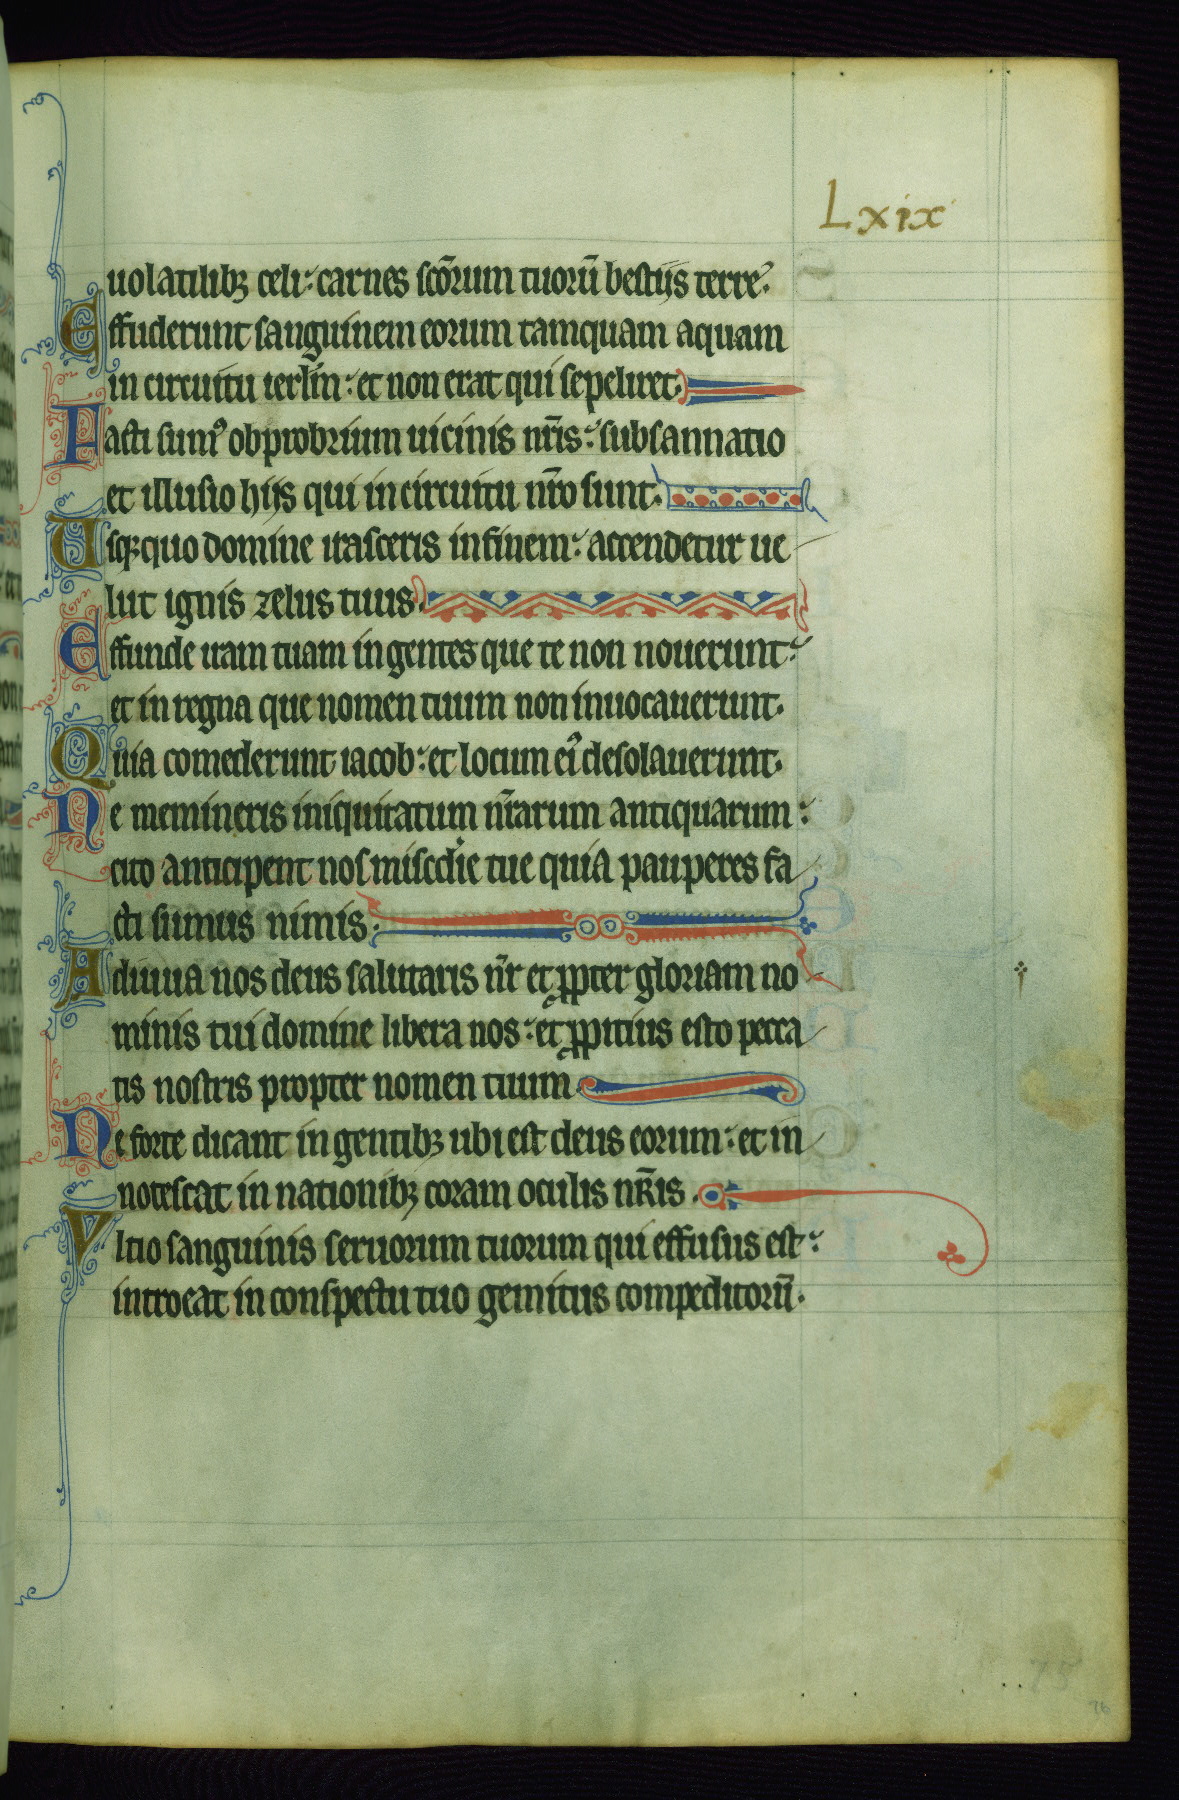 Lxix
uolatilibꝫ celi: carnes sc̄orum tuorū bestijs terre.
Effuderunt sanguinem eorum tamquam aquam
in circuitu ierl̄m: et non erat qui sepeliret.
Facti sumꝰ obprobrium uicinis nr̄is: subsannatio
et illusio hijs qui in circuitu nr̄o sunt.
Usqꝫquo domine irasceris in finem: accendetur ue
lut ignis zelus tuus.
Effunde iram tuam in gentes que te non nouerunt:
et in regna que nomen tuum non inuocauerunt.
Quia comederunt iacob: et locum eiꝰ desolauerunt.
Ne memineris iniquitatum nr̄arum antiquarum:
cito anticipent nos mis̄c̄die tue quia pauperes fa
cti sumus nimis.
Adiuua nos deus salutaris nr̄ et ꝓpter gloriam no
minis tui domine libera nos: et ꝓpitius esto pecca
tis nostris propter nomen tuum.
Ne forte dicant in gentibꝫ ubi est deus eorum: et in
notescat in nationibꝫ coram oculis nr̄is.
Vltio sanguinis seruorum tuorum qui effusus est:
introeat in conspectu tuo gemitus compeditorū.
75
76